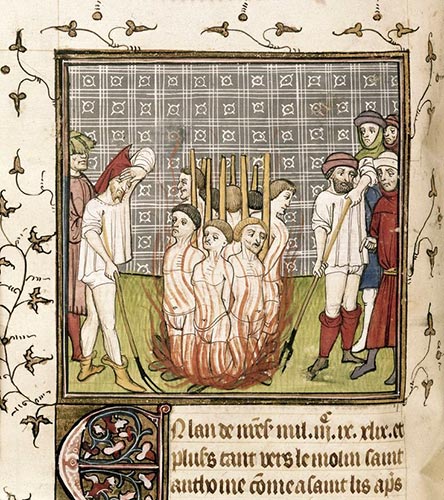 En lan de mil. xlix. et
plus̃s tant vers le molin saint
anthoine cõme a saint lis aps